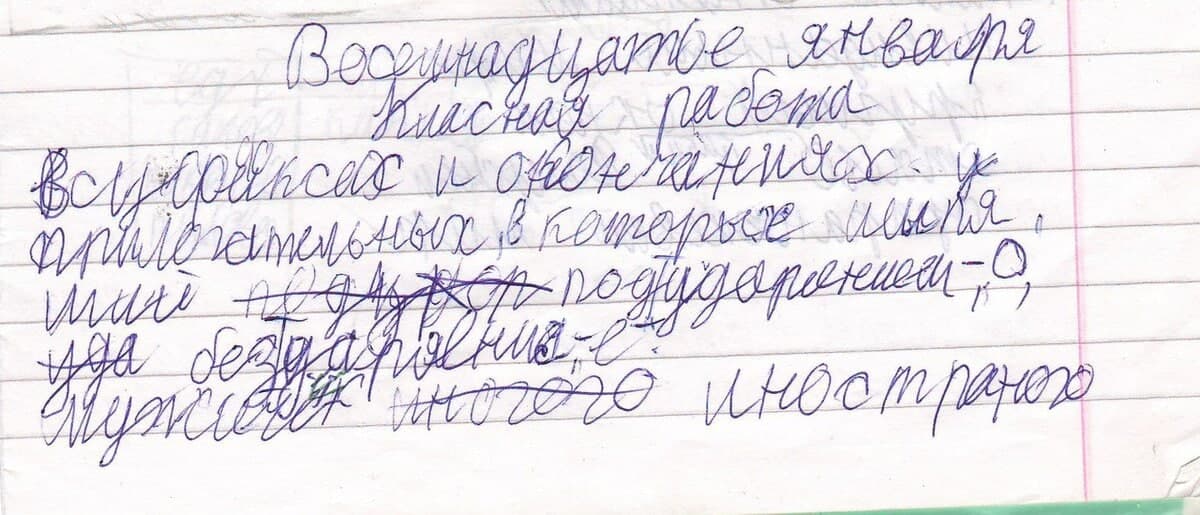 Восемнадцатое января
Класная работа
В суффиксах и окончаниях у
прилогательных, в которых шыпя,
щий под ударением - О,
без ударения - е.
Мужской иностраного